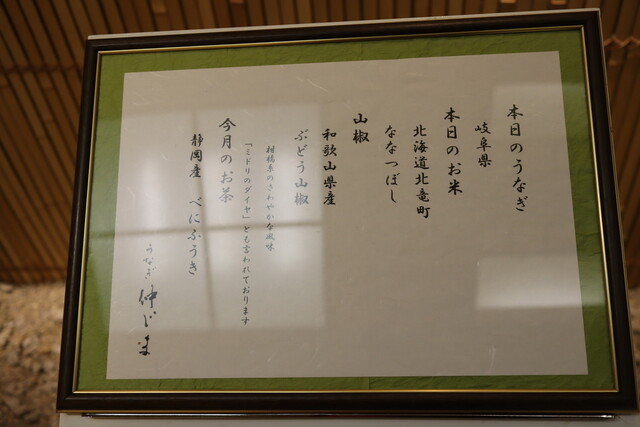 本日のうなぎ
岐阜県
本日のお米
北海道北竜町
ななつぼし
山椒
和歌山県産
ぶどう山椒
柑橘系のさわやかな風味
「ミドリのダイヤ」とも言われております
今月のお茶
静岡産 べにふうき
うなぎ 仲じま